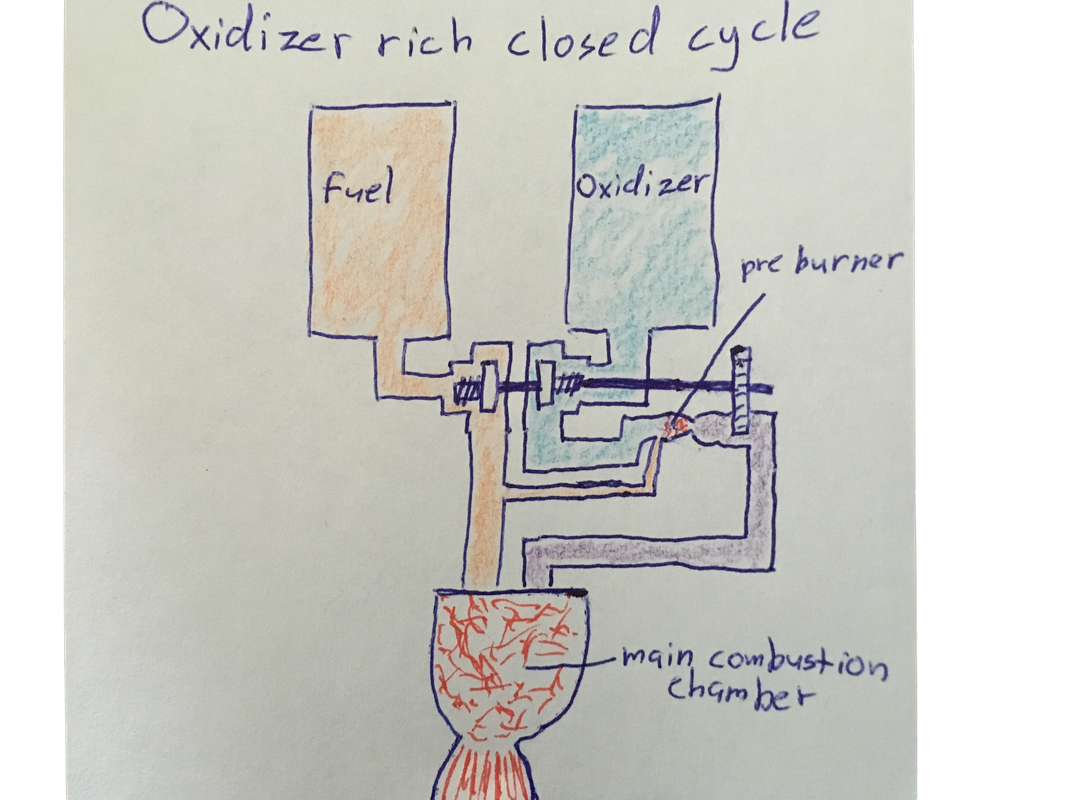 Oxidizer rich closed cycle
Fuel
Oxidizer
pre burner
main combustion
chamber